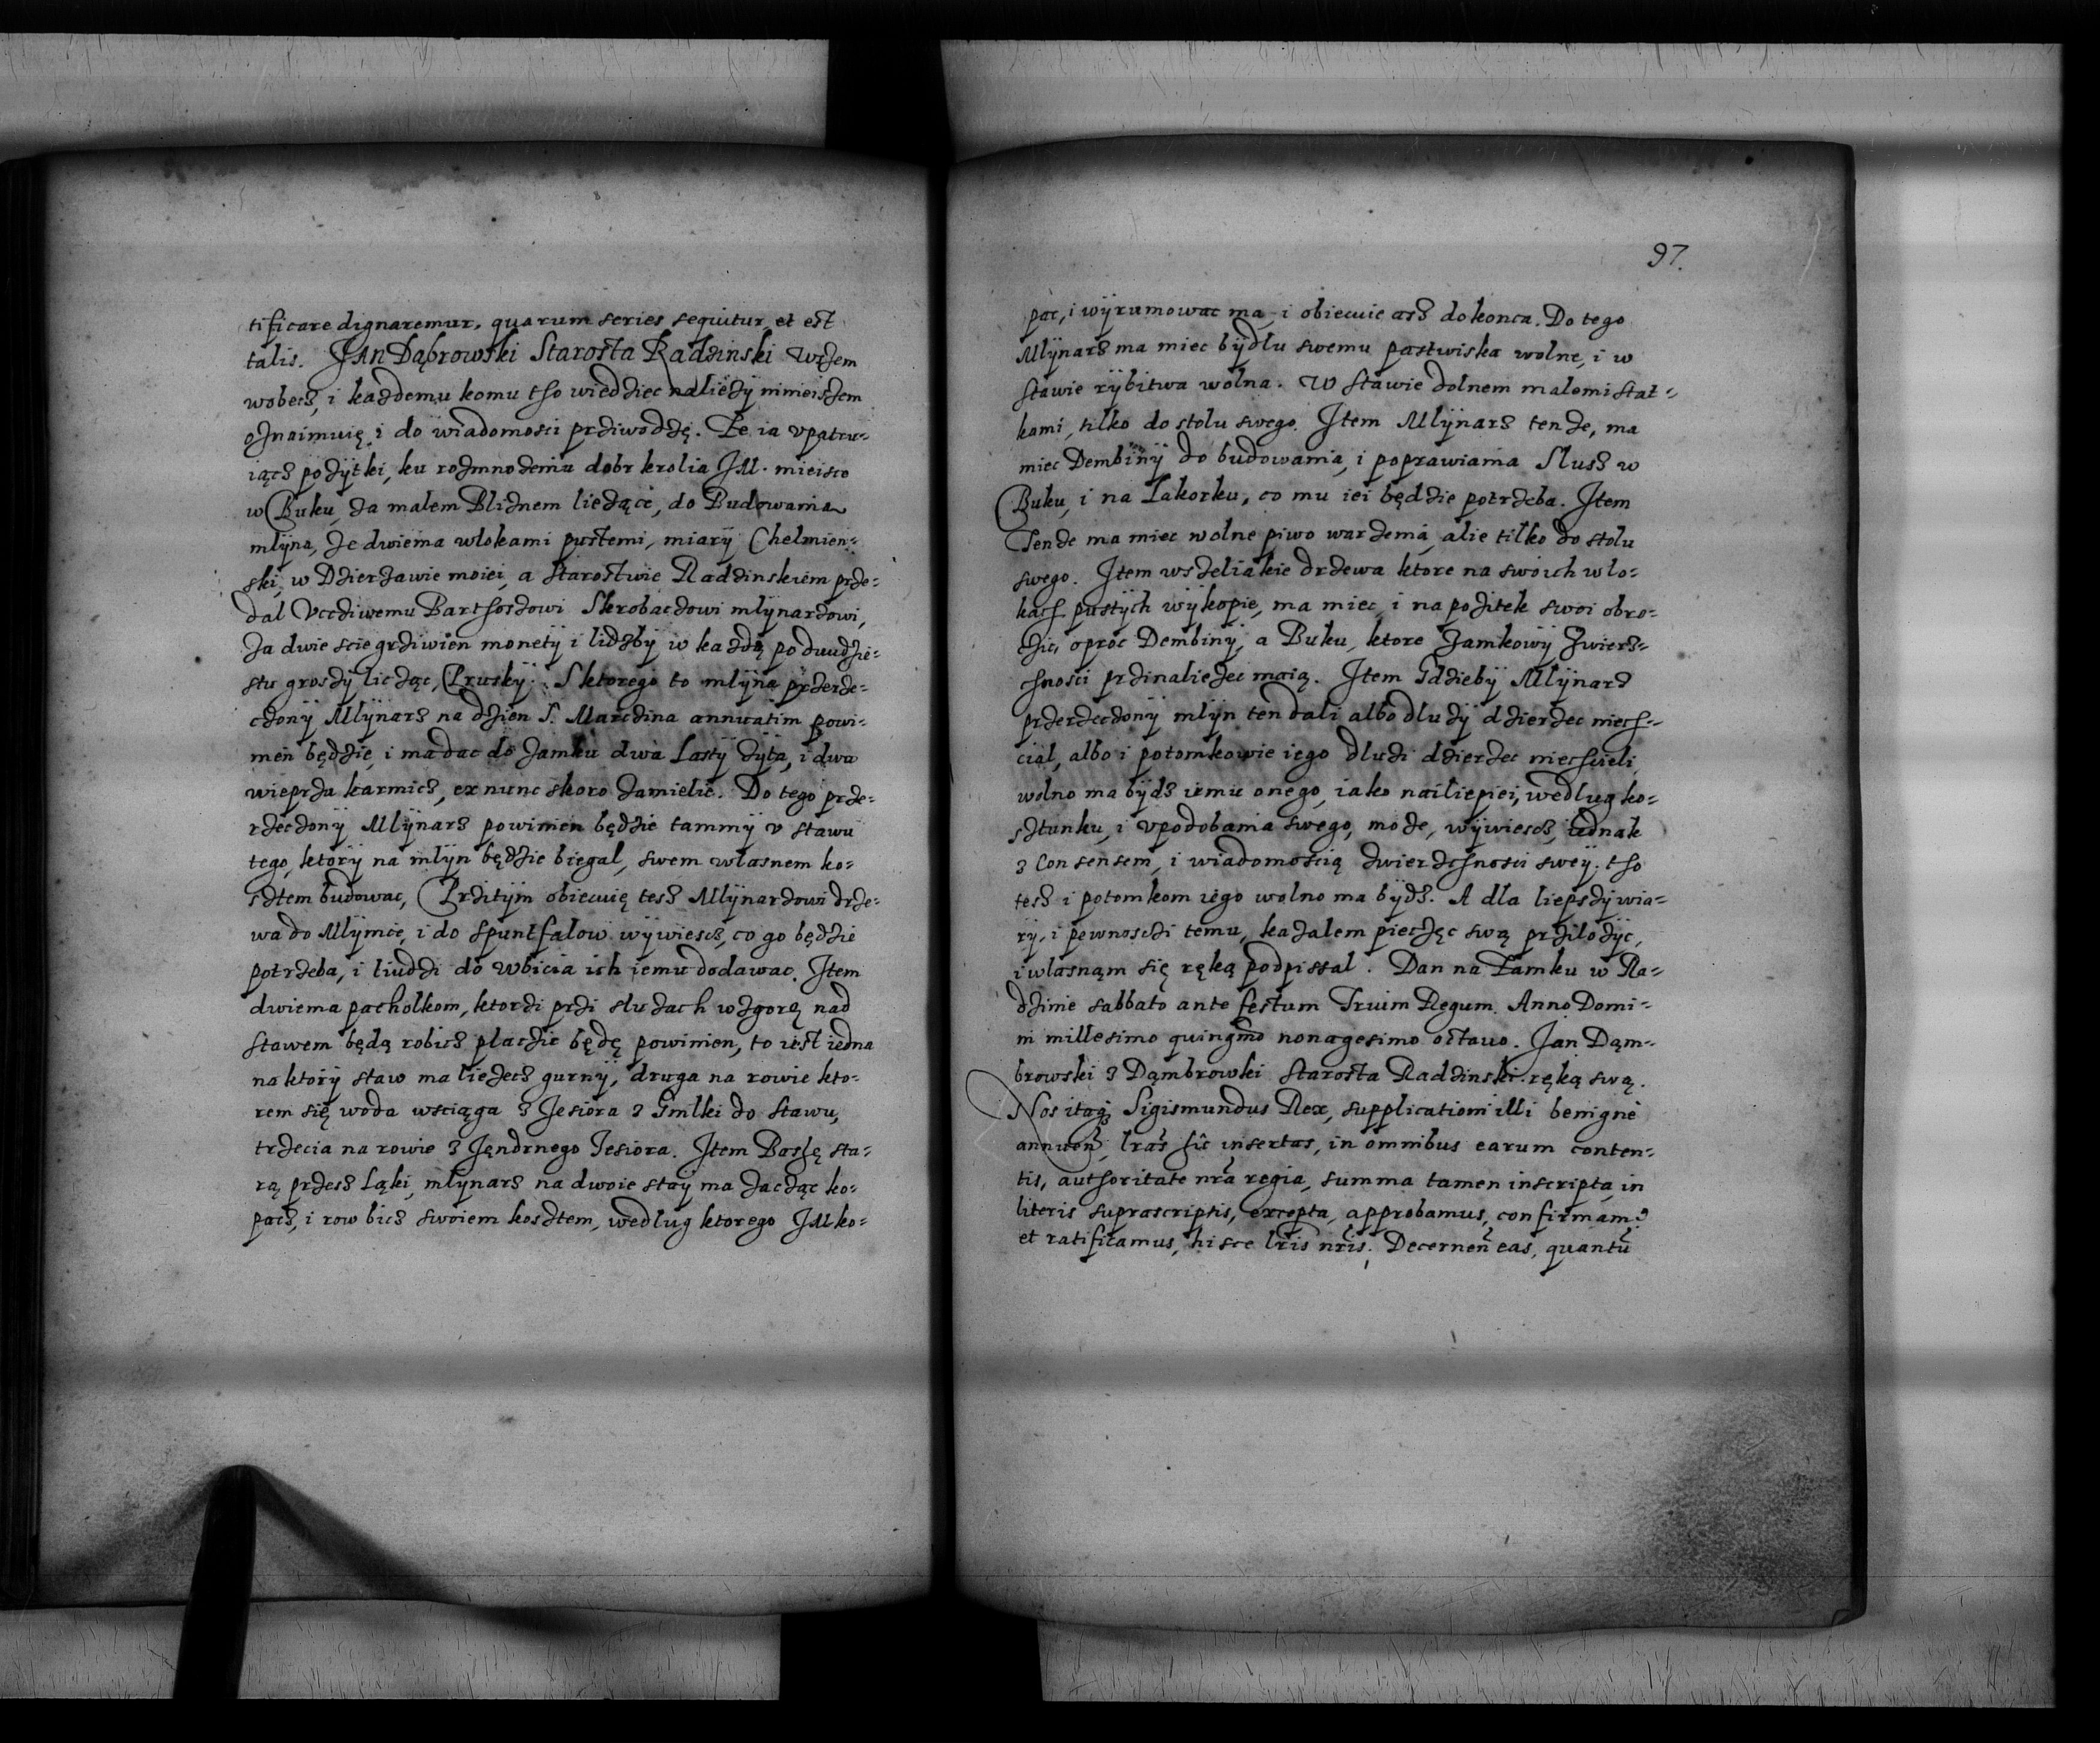 tificare dignaremur, quarum series sequitur, et est
talis. JAN Dąbrowski Starosta Radzinski Wszem
wobecz, i kazdemu komu tho wiedziec nalieżÿ ninieiszem
oznaimuię, i do wiadomosci prziwodzę. Że ia vpatru=
iącz pożÿtki, ku rozmnożeniu dobr krolia JM. mieisco
w Buku, za malem Bliznem lieżące, do Budowania
mlÿna, ze dwiema wlokami pustemi, miarÿ Chelmien=
ski, w Dzierzawie moiei, a Starostwie Radzinskiem prze=
dal Vcciwemu Barthoszowi Skrobaczowi mlÿnarzowi,
Za dwie scie grziwien monetÿ i lidzbÿ w każdą po dwudzie=
stu groszÿ licząc, Pruskÿ. S ktorego to mlÿna przerze=
czonÿ Mlÿnarz na dzien S. Marczina annuatim powi=
nien będzie, i ma dac do Zamku dwa Lastÿ żÿta, i dwa
wieprza karmicz, ex nunc skoro zamielie. Do tego prze=
rzeczonÿ Mlÿnarz powinien będzie tammÿ v stawu
tego, ktorÿ na mlÿn będzie biegal, swem wlasnem ko=
sztem budowac, Przitÿm obiecuię tesz Mlÿnarzowi drze=
wa do Mlÿnice, i do Spuntfalow wÿwiescz, co go będzie
potrzeba, i liudzi do wbicia ich iemu dodawac. Item
dwiema pacholkom, ktorzi przi sluzach wzgorę nad
Stawem będą robicz placzic będę powinien, to iest iedna
na ktorÿ staw ma lieżecz gurnÿ, druga na rowie kto=
rem się woda wsciąga z Jesiora z Gmlki do Stawu,
trzecia na rowie z Jęndrnego Jesiora. Item sta=
rą przesz Ląki, mlÿnarz na dwoie staÿ ma zacząc ko=
pacz, i row bicz swoiem kosztem, wedlug ktorego JM ko=
97.
pac, i wÿrumowac ma, i obiecuie asz do konca. Do tego
Mlÿnarz ma miec bÿdlu swemu pastwiska wolne, i w
stawie rÿbitwa wolna. W stawie dolnem malemi stat=
kami, tilko do stolu swego. Item Mlÿnarz tenże, ma
miec Dembinÿ do budowania, i poprawiania Slusz w
Buku, i na Zakorku, co mu iei będzie potrzeba. Item
Tenże ma miec wolne piwo warzenia, alie tilko do stolu
swego. Item wszeliakie drzewa ktore na swoich wlo=
kach pustÿch wÿkopie, ma miec, i na pożitek swoi obro=
cic, oproc Dembinÿ, a Buku, ktore Zamkowÿ Zwierz=
chnosci przinaliezec maią. Item Gdzieby Mlÿnarz
przerzeczonÿ mlÿn ten dali albo dluzÿ dzierżec niech=
cial, albo i potomkowie iego dluzi dzierżec niechcieli,
wolno ma bÿdz iemu onego, iako nailiepiei, wedlug ko=
sztunku, i vpodobania swego, może, wÿwiescz, iednak
z Consensem, i wiadomoscią zwierzchnosci sweÿ, tho
tesz i potomkom iego wolno ma bÿdz. A dla liepszÿ wia=
rÿ, i pewnosczi temu, kazalem pieczęc swą przilożÿc,
i wlasnąm się ręką podpissal. Dan na Zamku w Ra=
dzinie sabbato ante festum Trium Regum. Anno Domi=
ni millesimo quingmo nonagesimo octauo. Jan Dąm=
browski z Dąmbrowki Starosta Radzinski ręką swą.
Nos itaq₃ Sigismundus Rex, supplicationi illi benigne
annuen̄, lras sic insertas, in omnibus earum conten=
tis, authoritate nrã regia, summa tamen inscripta in
literis suprascriptis, excepta, approbamus, confirmam₉
et ratificamus, hisce lris nris. Decernen̄ eas, quantū